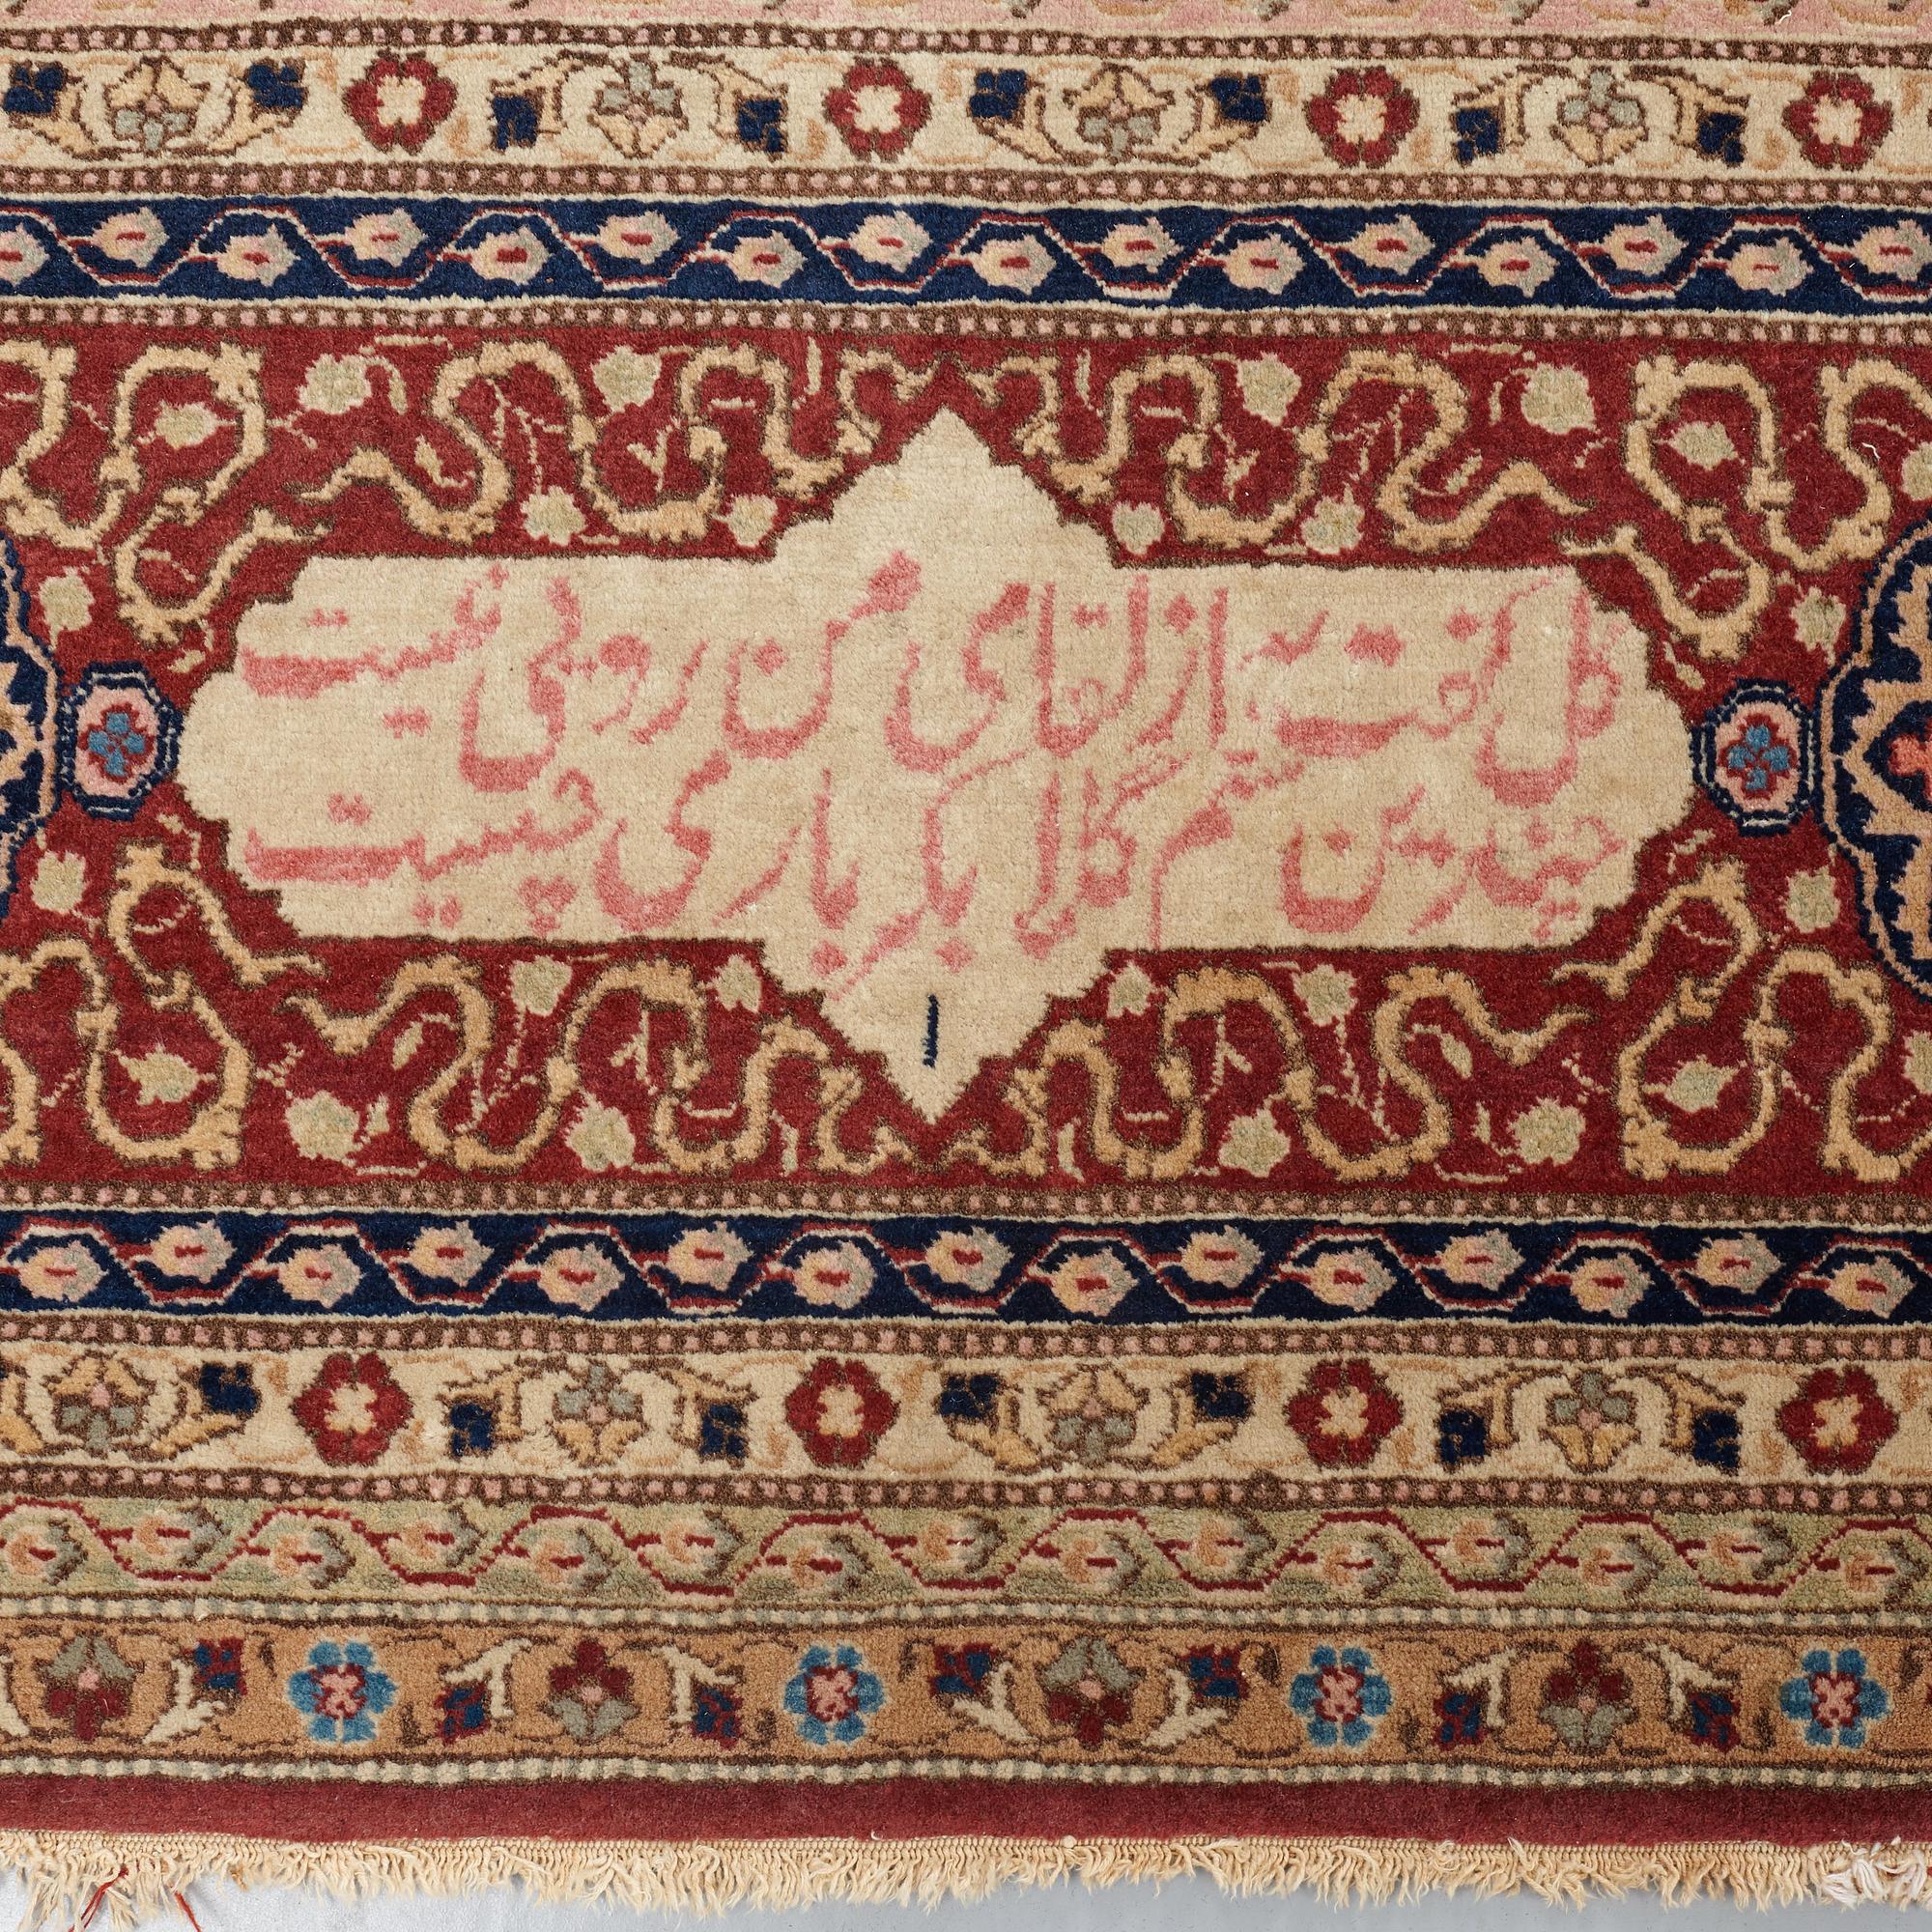 گل گفت به از لقای من روئی نیست
چندین ستم گلابگر باری چیست
۱